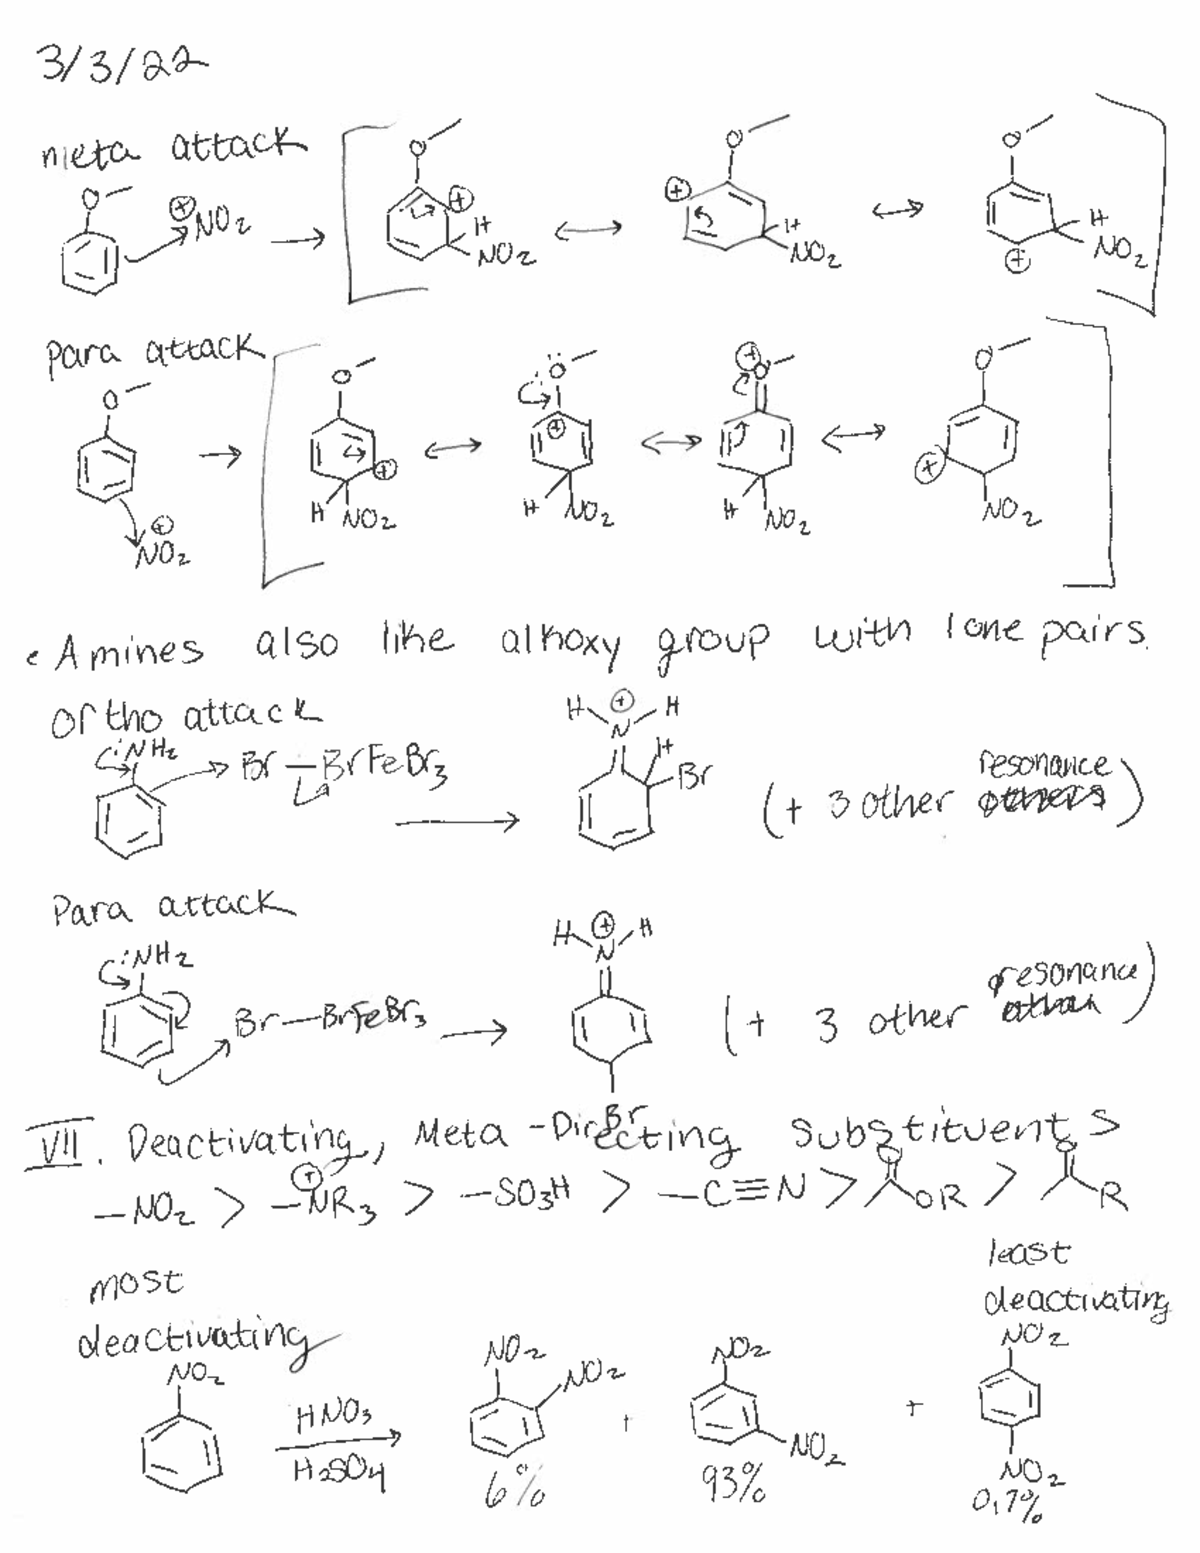 3/3/22
meta attack
O
⊕NO2
O ⊕ H NO2
O ⊕ H NO2
O ⊕ H NO2
para attack
O
⊕ NO2
O ⊕ H NO2
:Ö ⊕ H NO2
⊕ O H NO2
O ⊕ NO2
• Amines also like alkoxy group with lone pairs.
ortho attack
:NH2 Br—BrFeBr3
H ⊕ N H H Br
(+ 3 other resonance)
Para attack
:NH2 Br—BrFeBr3
H ⊕ N H Br
(+ 3 other resonance)
VII. Deactivating, Meta-Directing Substituents
—NO2 > —⊕NR3 > —SO3H > —C≡N > O OR > O R
most deactivating
least deactivating
NO2 HNO3 H2SO4
NO2 NO2 + NO2 NO2 + NO2 NO2
6% 93% 0.7%